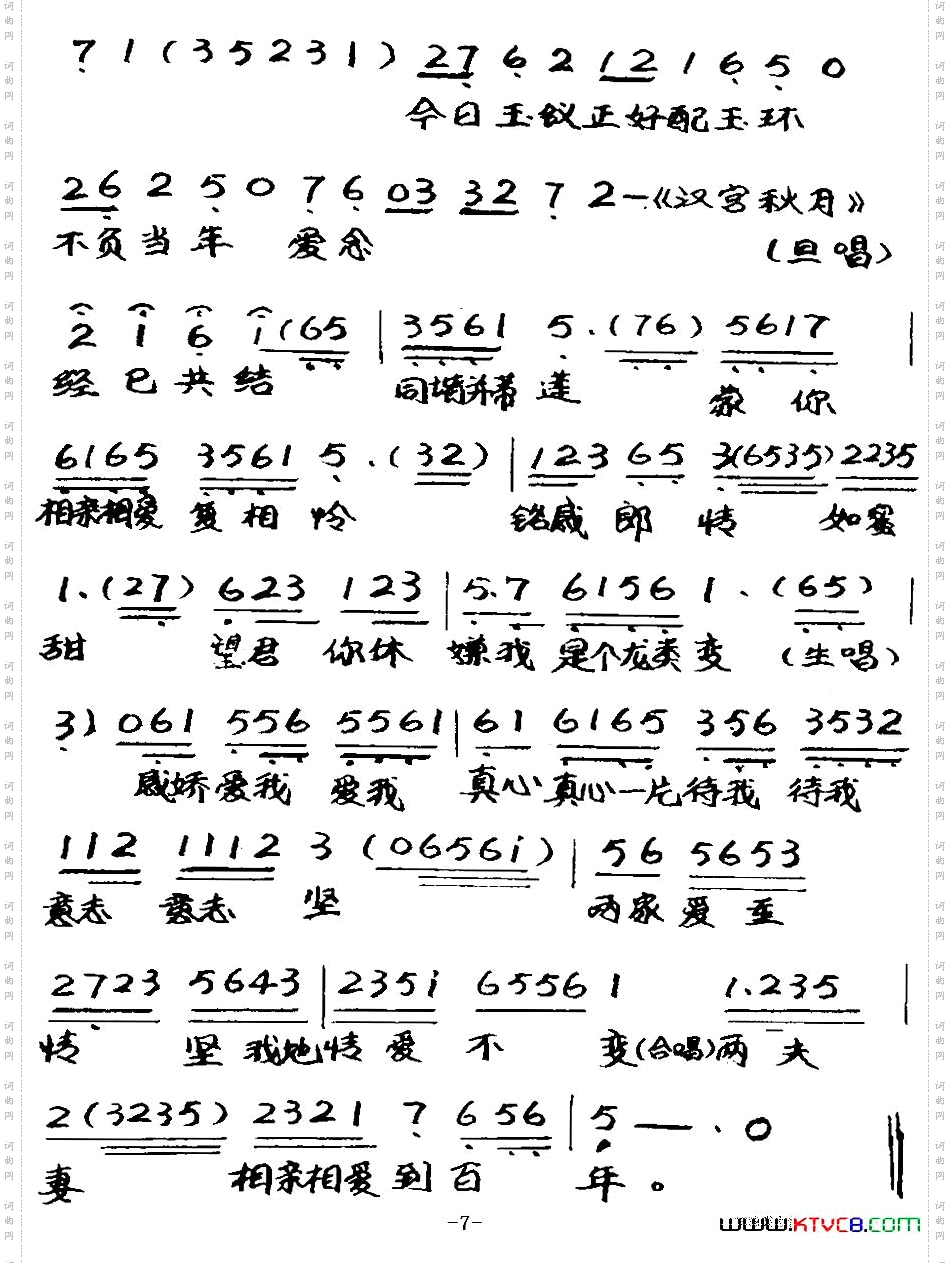 7 1 ( 3 5 2 3 1 ) 27 6 2 12 1 6 5 0
今日玉蚁正好配玉环
26 2 5 0 7 6 03 32 7 2 —《汉宫秋月》
不负当年 爱念 (旦唱)
2 1 6 i (65 | 3561 5 . (76) 5617 |
经已共结 同埔并蒂莲 蒙你
6165 3561 5 . (32) | 123 65 3(6535) 2235
相亲相爱 复相怜 铭感郎情 如蜜
1 . (27) 623 123 | 5.7 6156 1 . (65) |
甜 望君 你休 嫌我是个龙类变 (生唱)
3) 061 556 5561 | 61 6165 356 3532
感娇爱我 爱我 真心真心一片待我 待我
112 1112 3 (06561) | 56 5653
意志 意志 坚 两家爱至
2723 5643 | 235i 6556 1 1.235 |
情 坚我她情爱不 变(合唱)两夫
2 (3235) 2321 7 656 | 5 — . 0
妻 相亲相爱到百 年。
-7-
www.KTVC8.com